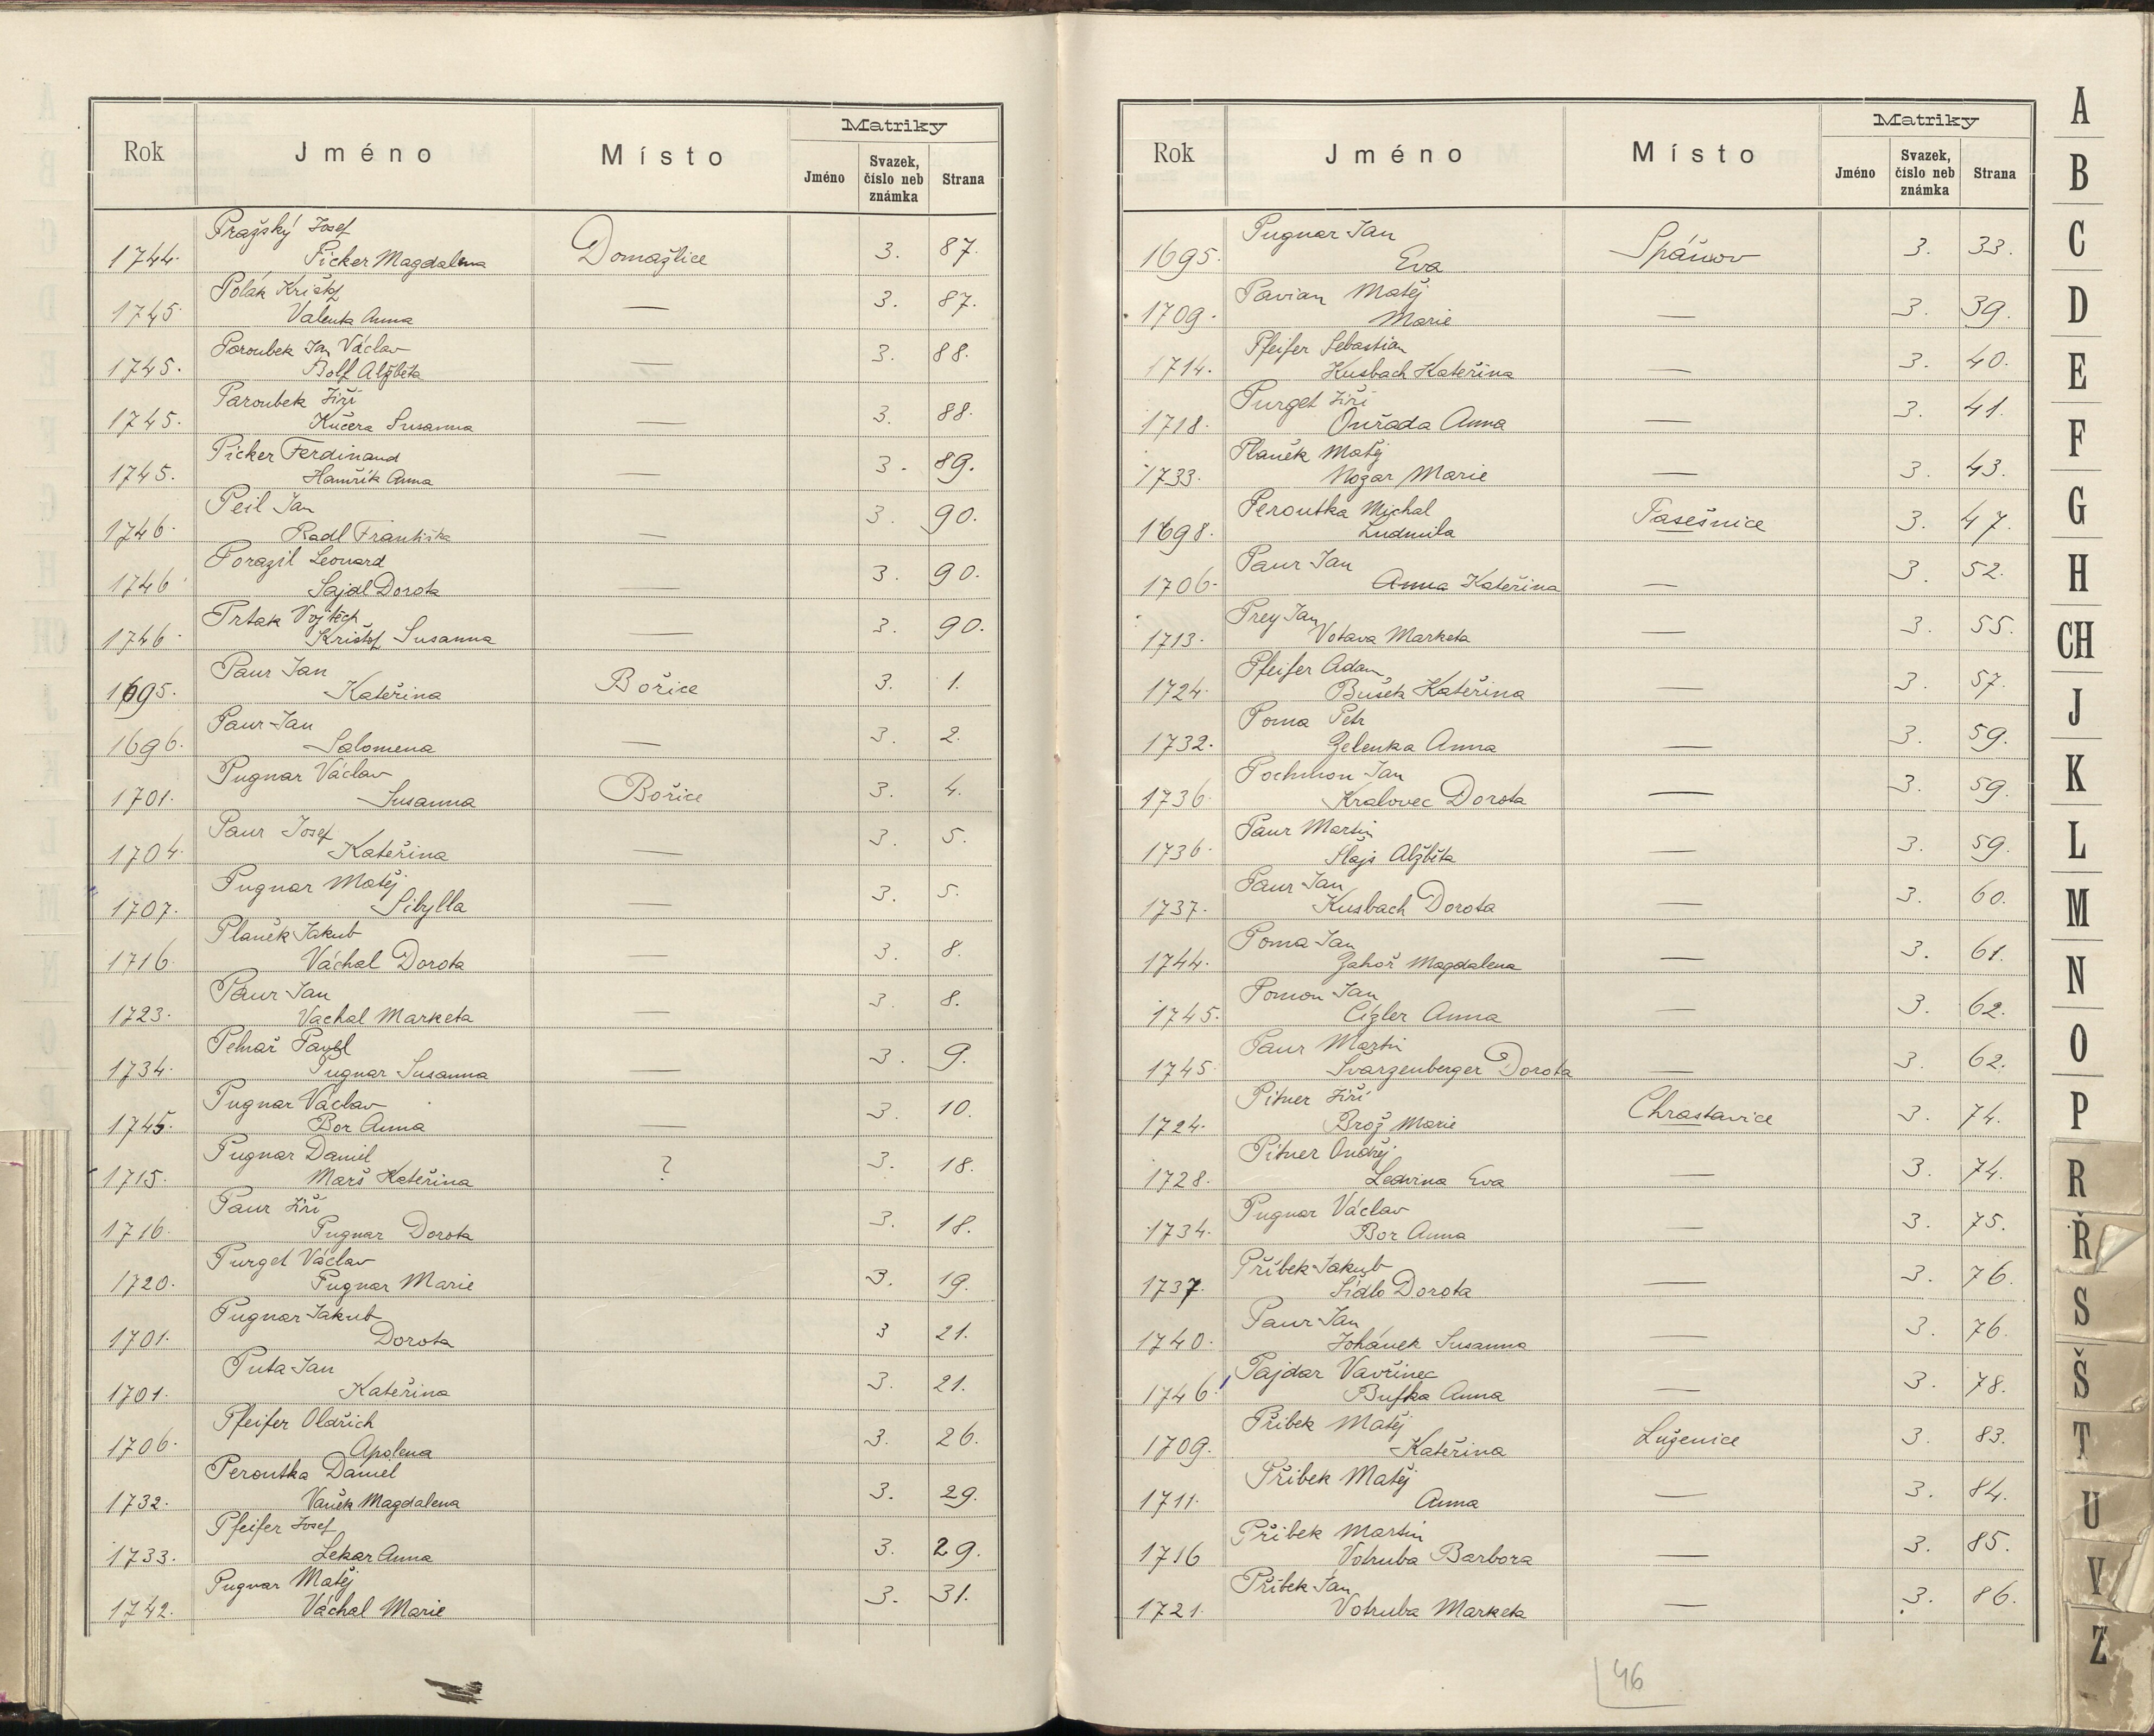 Matriky
Rok Jméno Místo Jméno Svazek, číslo neb známka Strana
Pražský Josef
1744. Picker Magdalena Domažlice 3. 87.
Polák Krištof
1745 Valenta Anna — 3. 87.
Paroubek Jan Václav
1745. Bolf Alžběta — 3. 88.
Paroubek Jiří
1745. Kučera Susanna — 3. 88.
Picker Ferdinand
1745. Hamřík Anna — 3. 89.
Peil Jan
1746. Radl Františka — 3. 90.
Porazil Leonard
1746 Sajdl Dorota — 3. 90.
Prtak Vojtěch
1746 Krištof Susanna — 3. 90.
Paur Jan
1695. Kateřina Bořice 3. 1.
Paur Jan
1696. Salomena — 3. 2.
Pugnar Václav
1701. Susanna Bořice 3. 4.
Paur Josef
1704. Kateřina — 3. 5.
Pugnar Matěj
1707. Sibylla — 3. 5.
Planěk Jakub
1716. Váchal Dorota — 3. 8.
Paur Jan
1723. Vachal Marketa — 3. 8.
Pelnař Pavel
1734. Pugnar Susanna — 3. 9.
Pugnar Václav
1745. Bor Anna — 3. 10.
Pugnar Daniel
1715. Marš Kateřina ? 3. 18.
Paur Jiří
1716. Pugnar Dorota 3. 18.
Purget Václav
1720. Pugnar Marie 3. 19.
Pugnar Jakub
1701. Dorota 3 21.
Puta Jan
1701. Kateřina 3. 21.
Pfeifer Oldřich
1706. Apolena 3. 26.
Peroutka Daniel
1732. Vaněk Magdalena 3. 29.
Pfeifer Josef
1733. Lekar Anna 3. 29.
Pugnar Matěj
1742. Váchal Marie 3. 31.
Matriky
Rok Jméno Místo Jméno Svazek, číslo neb známka Strana
Pugnar Jan
1695. Eva Spáňov 3. 33.
Pavian Matěj
1709. Marie — 3. 39.
Pfeifer Sebastian
1714. Kusbach Kateřina — 3. 40.
Purget Jiří
1718. Ouřada Anna — 3. 41.
Planěk Matěj
1733. Nogar Marie — 3. 43.
Peroutka Michal
1698. Ludmila Pasešnice 3. 47.
Paur Jan
1706. Anna Kateřina — 3. 52.
Prey Jan
1713. Votava Marketa — 3. 55.
Pfeifer Adam
1724. Bušek Kateřina — 3. 57.
Poma Petr
1732. Zelenka Anna — 3. 59.
Pochmon Jan
1736 Kralovec Dorota — 3. 59.
Paur Martin
1736 Šlajs Alžběta — 3. 59.
Paur Jan
1737. Kusbach Dorota — 3. 60.
Poma Jan
1744. Zahoř Magdalena — 3. 61.
Pomon Jan
1745. Cízler Anna — 3. 62.
Paur Martin
1745 Svarzenberger Dorota — 3. 62.
Pitner Jiří
1724. Brož Marie Chrastavice 3. 74.
Pitner Ondřej
1728. Ledvina Eva — 3. 74.
Pugnar Václav
1734. Bor Anna — 3. 75.
Přibek Jakub
1737. Sídlo Dorota — 3. 76.
Paur Jan
1740. Johánek Susanna — 3. 76.
Pajdar Vavřinec
1746. Bufka Anna — 3. 78.
Přibek Matěj
1709. Kateřina Luženice 3. 83.
Přibek Matěj
1711. Anna — 3. 84.
Přibek Martin
1716 Votruba Barbora — 3. 85.
Přibek Jan
1721. Votruba Marketa — 3. 86.
46
A
B
C
D
E
F
G
H
CH
J
K
L
M
N
O
P
R
Ř
S
Š
T
U
V
Z